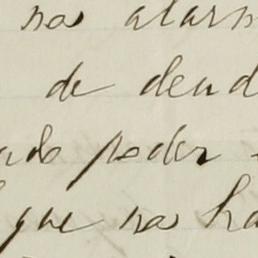 no alarm
de deud
ado poder
que no ha